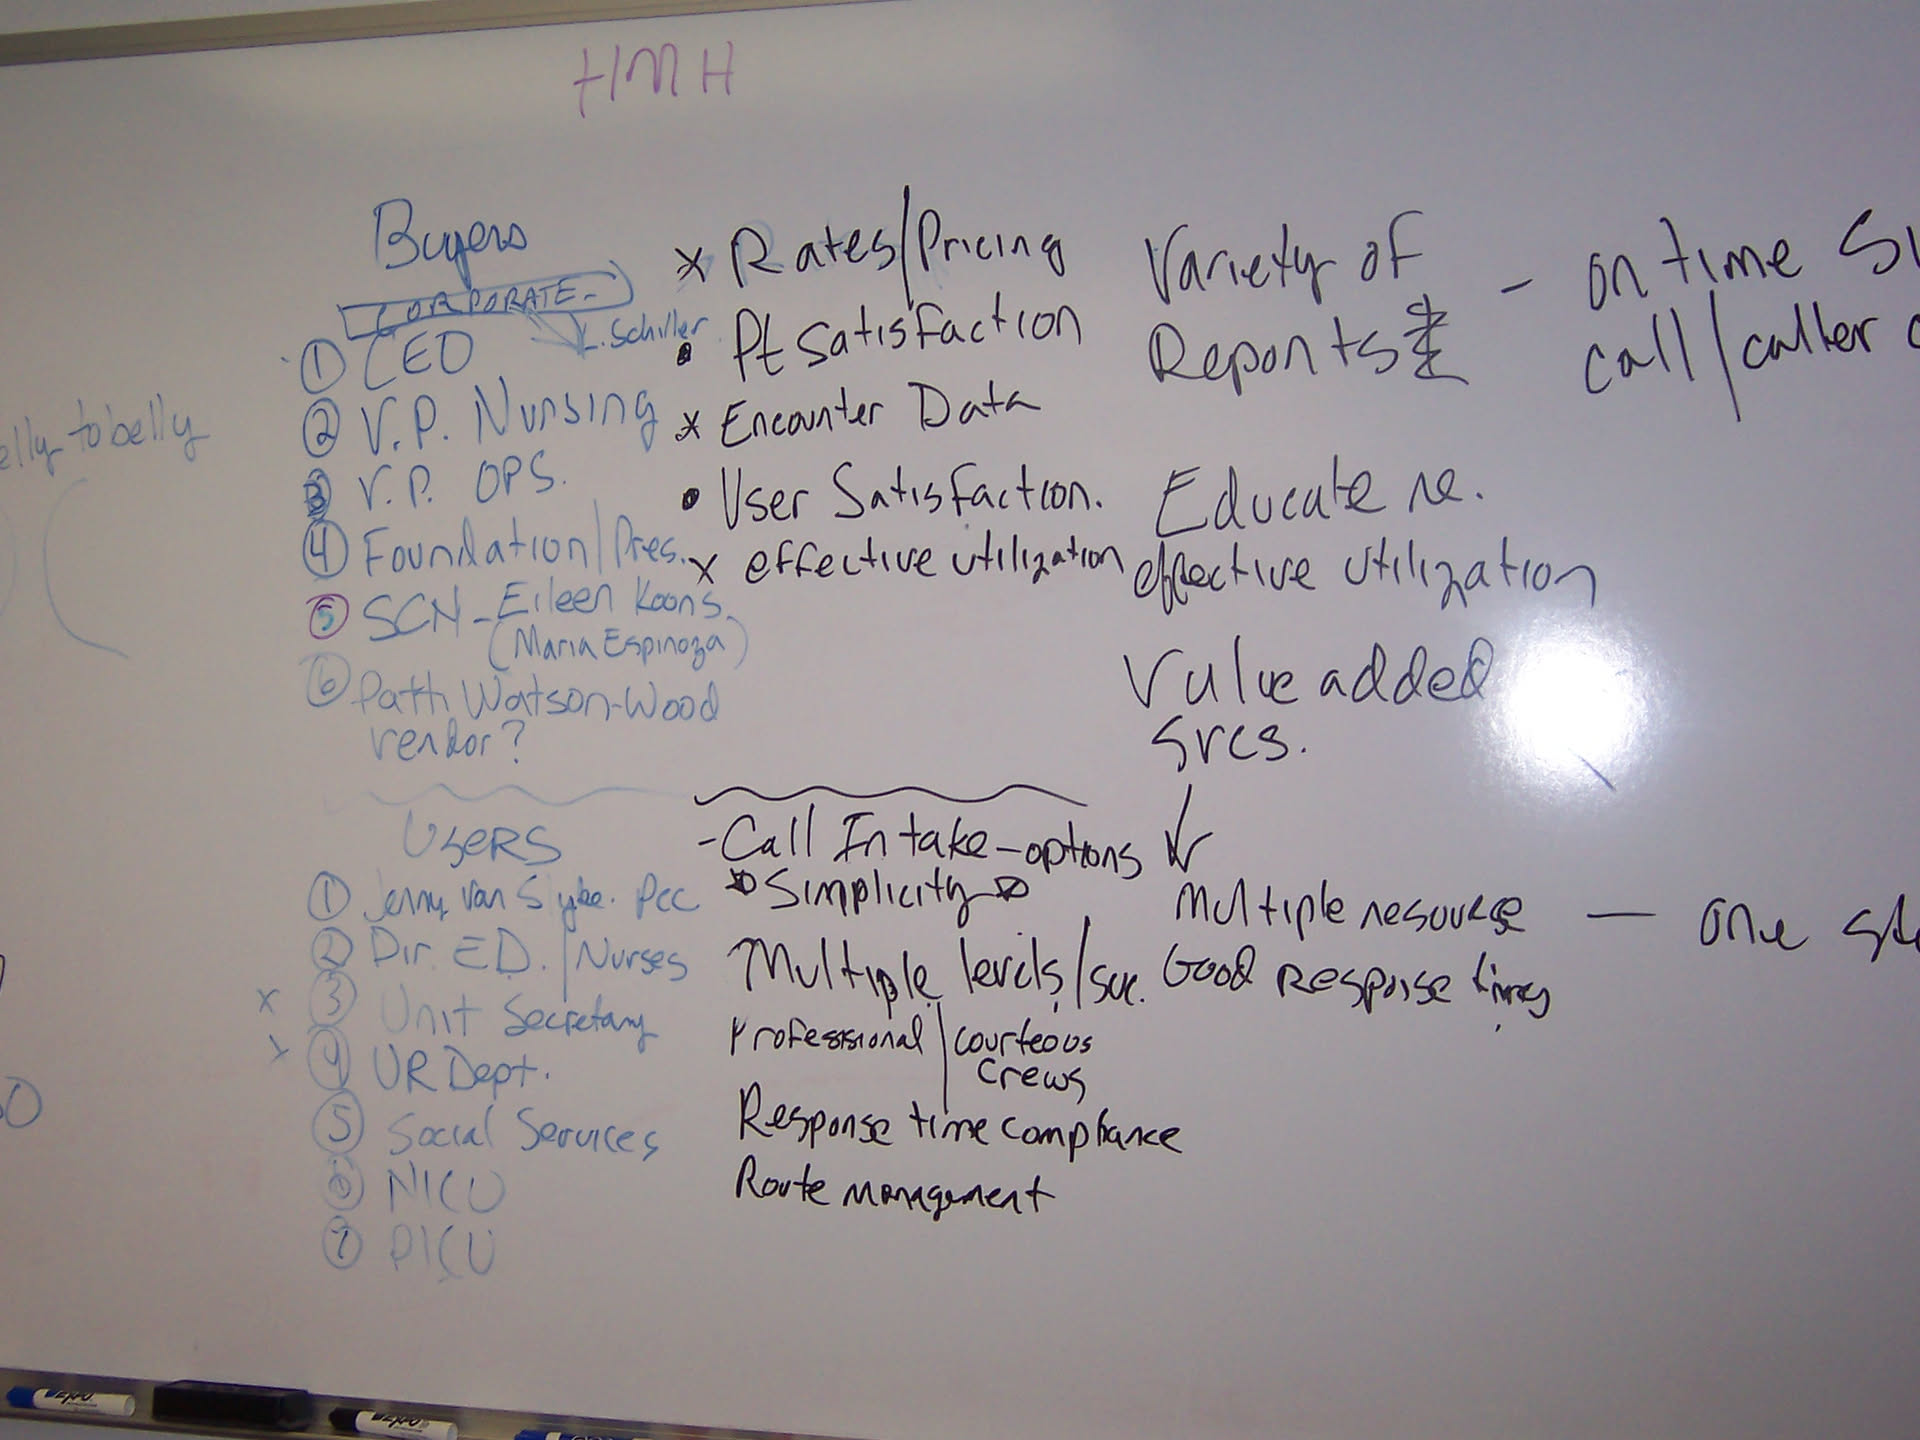 HMH
Buyers
CORPORATE-
L. Schiller
① CEO
② V.P. Nursing
③ V.P. OPS.
④ Foundation/Pres.
⑤ SCN - Eileen Koons
(Maria Espinoza)
⑥ Patti Watson-Wood
vendor?
x Rates/Pricing
• Pt Satisfaction
x Encounter Data
• User Satisfaction.
x effective utilization
Variety of
Reports
- on time
call/caller
Educate re.
effective utilization
Value added
srcs.
elly to belly
Users
① Jenny Van Slyke. PCC
② Dir. E.D./Nurses
x ③ Unit Secretary
x ④ UR Dept.
⑤ Social Services
⑥ NICU
⑦ PICU
- Call Intake - options
Simplicity
Multiple levels/svc.
Professional/courteous
crews
Response time compliance
Route management
Multiple resource — one
Good Response times
EXPO
EXPO